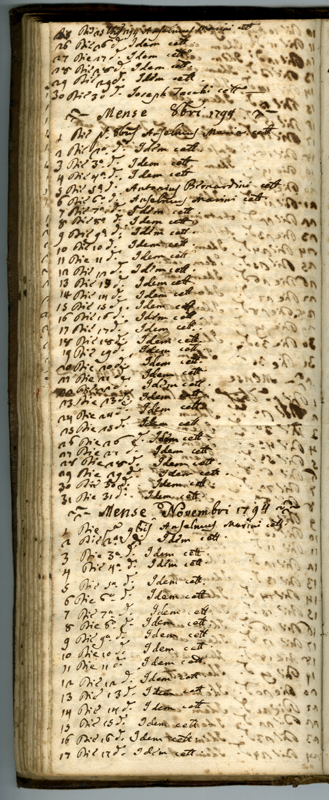 26 Die 26 d. Idem cett
27 Die 27 d. Idem cett
28 Die 28 d. Idem cett
29 Die 29 d. Idem cett
30 Die 30 d. Joseph Jacobi cett
Mense 8bri 1794
1 Die p. 8bris Anselmus Marini cett
2 Die 2a d. Idem cett
3 Die 3a d. Idem cett
4 Die 4a d. Idem cett
5 Die 5a d. Antonius Bernardini cett
6 Die 6a d. Anselmus Marini cett
7 Die 7a d. Idem cett
8 Die 8a d. Idem cett
9 Die 9a d. Idem cett
10 Die 10 d. Idem cett
11 Die 11 d. Idem cett
12 Die 12 d. Idem cett
13 Die 13 d. Idem cett
14 Die 14 d. Idem cett
15 Die 15 d. Idem cett
16 Die 16 d. Idem cett
17 Die 17 d. Idem cett
18 Die 18 d. Idem cett
19 Die 19 d. Idem cett
20 Die 20 d. Idem cett
Idem cett
Idem cett
23 Die 23 d. Idem cett
24 Die 24 d. Idem cett
25 Die 25 d. Idem cett
26 Die 26 d. Idem cett
27 Die 27 d. Idem cett
28 Die 28 d. Idem cett
29 Die 29 d. Idem cett
30 Die 30 d. Idem cett
31 Die 31 d. Idem cett
Mense Novembri 1794
1 Die pa 9bris Anselmus Marini cett
2 Die 2a d. Idem cett
3 Die 3a d. Idem cett
4 Die 4a d. Idem cett
5 Die 5a d. Idem cett
6 Die 6a d. Idem cett
7 Die 7a d. Idem cett
8 Die 8a d. Idem cett
9 Die 9a d. Idem cett
10 Die 10 d. Idem cett
11 Die 11 d. Idem cett
12 Die 12 d. Idem cett
13 Die 13 d. Idem cett
14 Die 14 d. Idem cett
15 Die 15 d. Idem cett
16 Die 16 d. Idem cett
17 Die 17 d. Idem cett